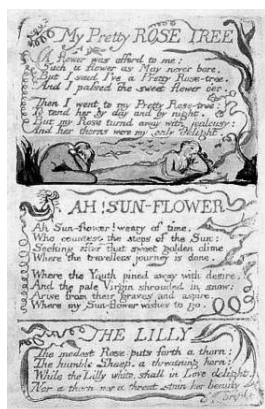 My Pretty ROSE TREE
A flower was offerd to me:
Such a flower as May never bore,
But I said I've a Pretty Rose-tree,
And I passed the sweet flower oer.
Then I went to my Pretty Rose-tree:
To tend her by day and by night.
But my Rose turnd away with jealousy:
And her thorns were my only delight.
AH! SUN-FLOWER
Ah Sun-flower! weary of time,
Who countest the steps of the Sun:
Seeking after that sweet golden clime
Where the travellers journey is done.
Where the Youth pined away with desire,
And the pale Virgin shrouded in snow:
Arise from their graves and aspire,
Where my Sun-flower wishes to go.
THE LILLY
The modest Rose puts forth a thorn:
The humble Sheep, a threatning horn:
While the Lilly white, shall in Love delight,
Nor a thorn nor a threat stain her beauty